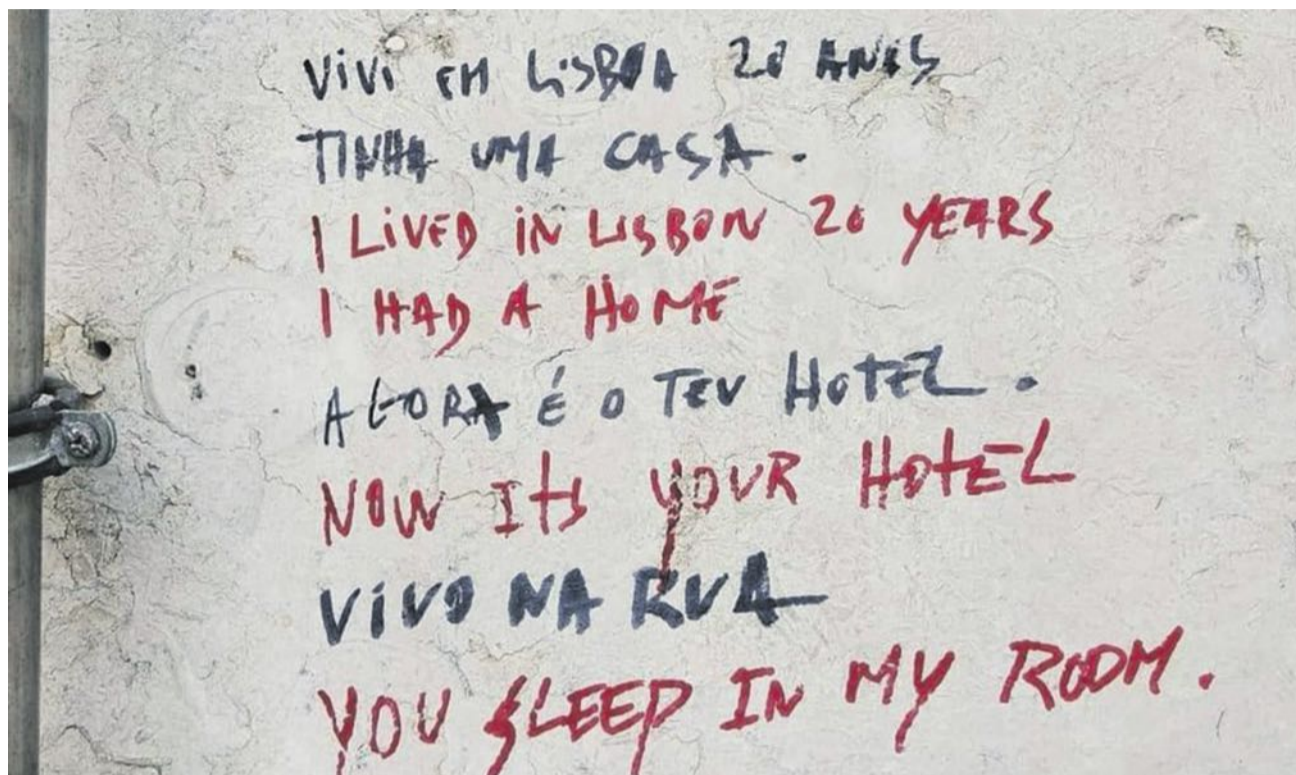 ViVi EM LiSBOA 20 ANOS
TINHA UMA CASA.
I LiVED iN LISBON 20 YEARS
I HAD A HOME
AGORA É O TEU HOTEL.
NOW ItS YOUR HOtEL
ViVO NA RUA
YOU SLEEP IN MY ROOM.